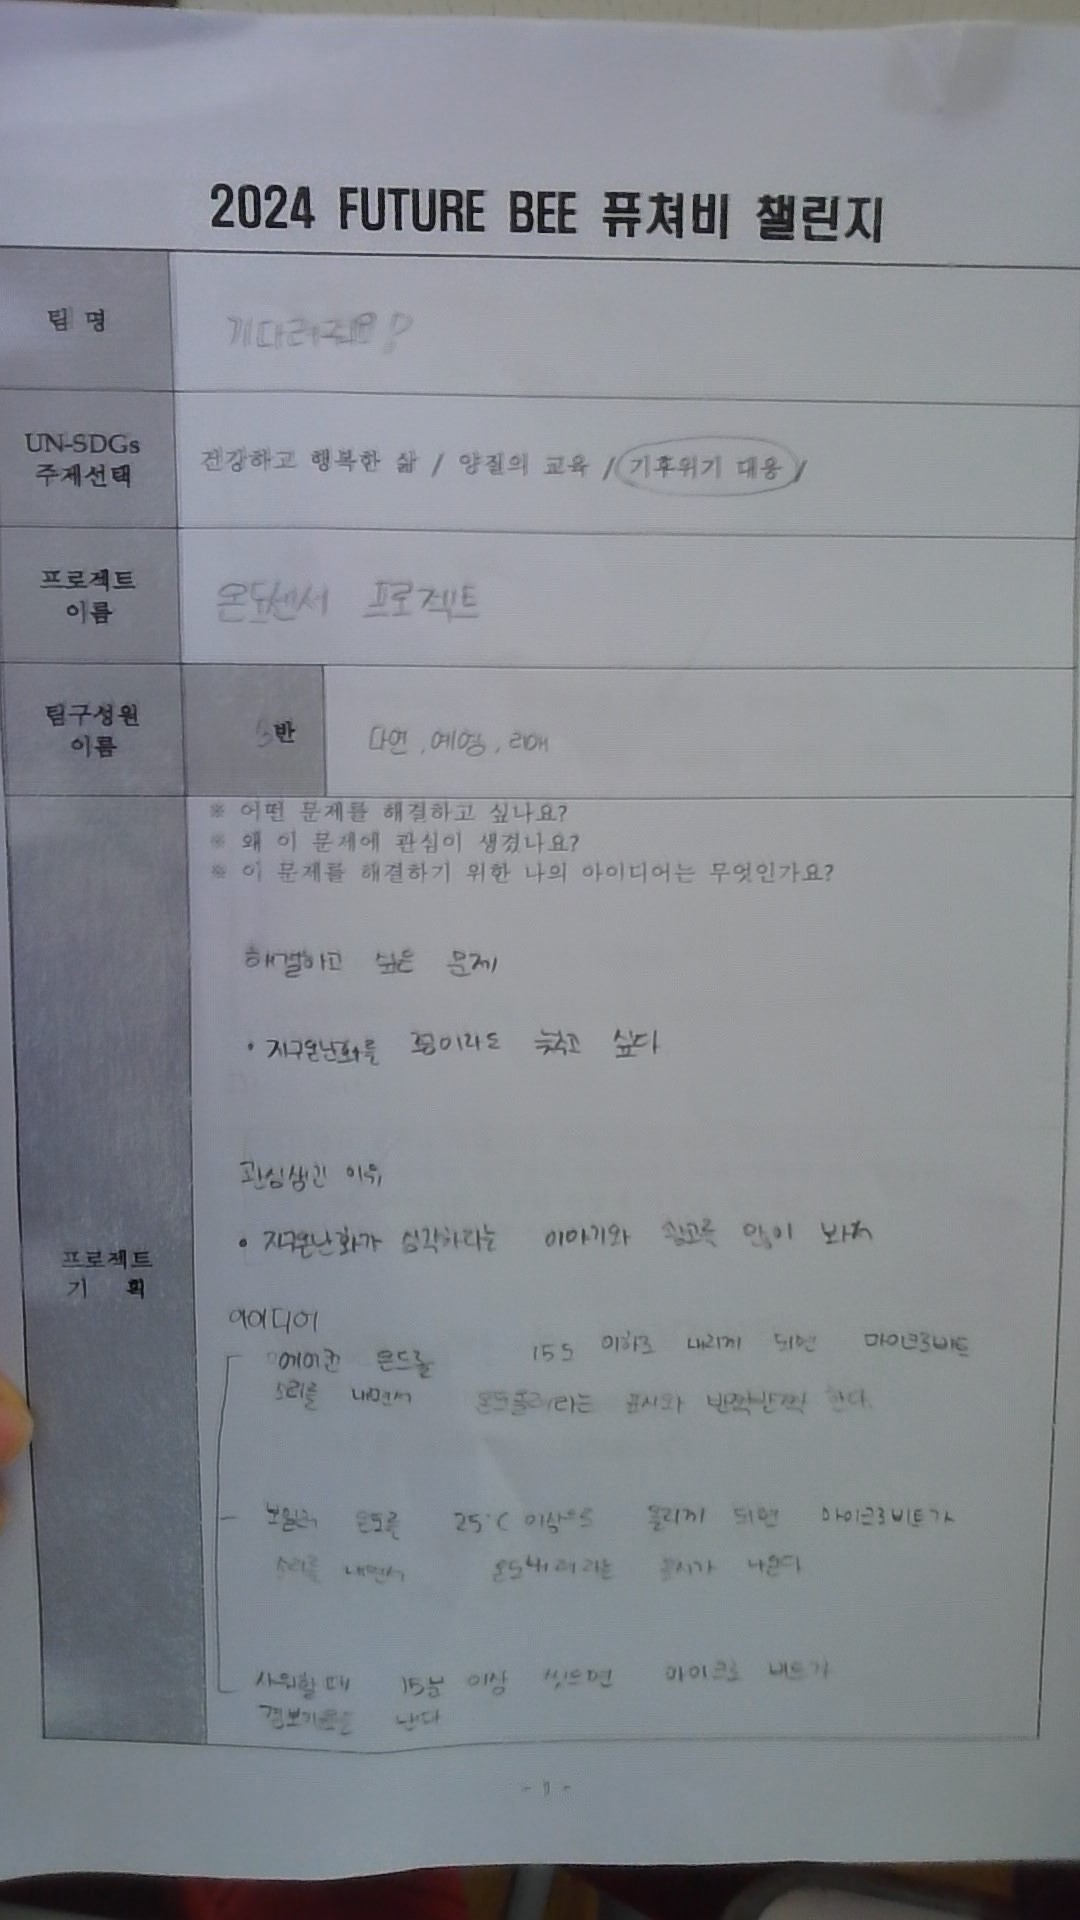 2024 FUTURE BEE 퓨쳐비 챌린지
팀 명
기다려줘요!
UN-SDGs
주제선택
건강하고 행복한 삶 / 양질의 교육 / 기후위기 대응 /
프로젝트
이름
온도센서 프로젝트
팀구성원
이름
3반
다연, 예영, 리애
※ 어떤 문제를 해결하고 싶나요?
※ 왜 이 문제에 관심이 생겼나요?
※ 이 문제를 해결하기 위한 나의 아이디어는 무엇인가요?
프로젝트
기 획
해결하고 싶은 문제
• 지구온난화를 조금이라도 늦추고 싶다
관심생긴 이유
• 지구온난화가 심각하다는 이야기와 많이 봐서
아이디어
에어컨 온도를 15도 이하로 내리게 되면 마이크로비트
소리를 내면서 온도올려라는 표시와 반짝반짝 한다.
보일러 온도를 25°C 이상으로 올리게 되면 마이크로비트가
소리를 내면서 온도내려라는 표시가 나온다
샤워할 때 15분 이상 씻으면 마이크로 비트가
난다